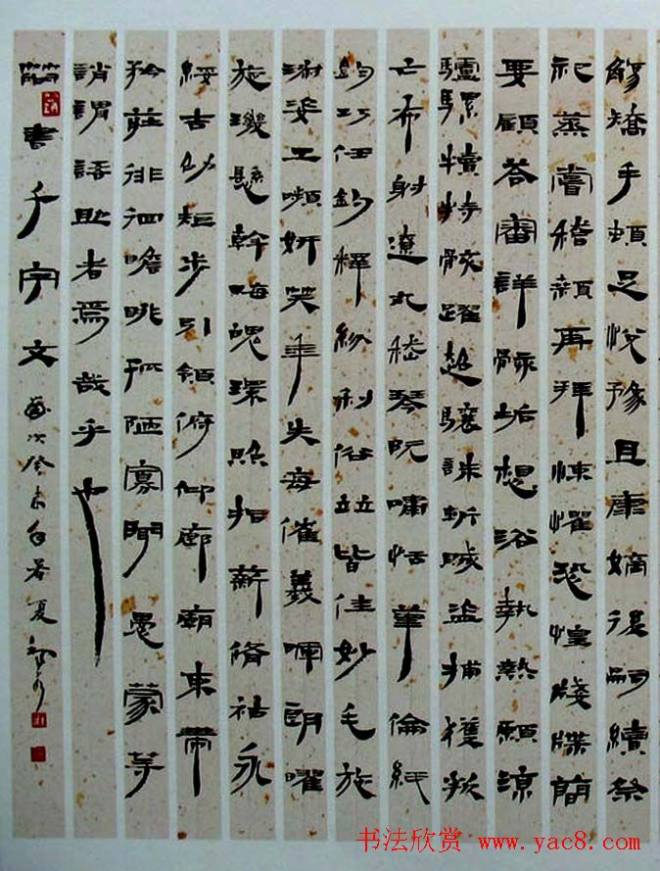 觴矯手頓足悅豫且康嫡後嗣續祭
祀蒸嘗稽顙再拜悚懼恐惶牋牒簡
要顧答審詳骸垢想浴執熱願涼
驢騾犢特駭躍超驤誅斬賊盜捕獲叛
亡布射遼丸嵇琴阮嘯恬筆倫紙
鈞巧任釣釋紛利俗竝皆佳妙毛施
淑姿工嚬妍笑年矢每催羲暉朗曜
旋璣懸斡晦魄環照指薪脩祜永
綏吉劭矩步引領俯仰廊廟束帶
矜莊徘徊瞻眺孤陋寡聞愚蒙等
誚謂語助者焉哉乎也
簡書千字文 歲次癸未
书法欣赏 www.yac8.com